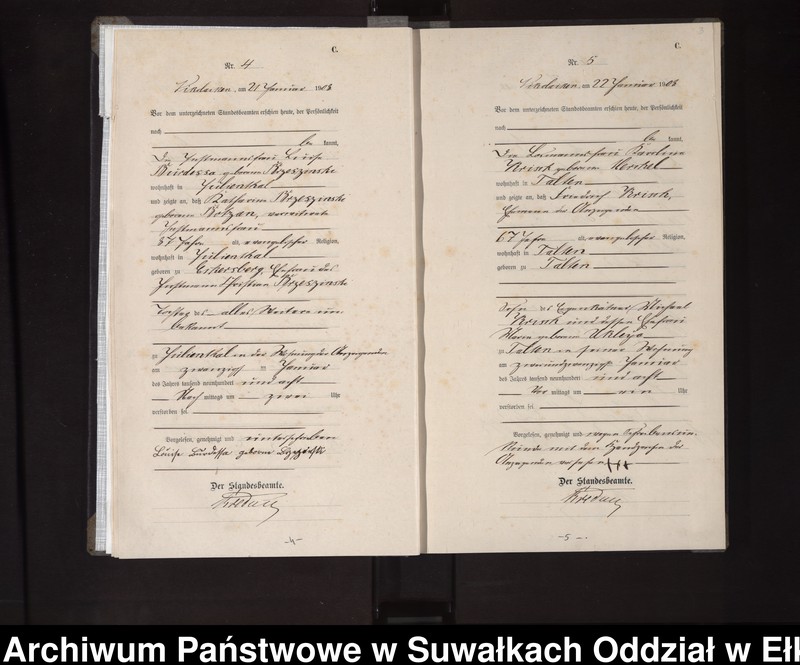 C.
Nr. 4
am 21 Januar 1908
Vor dem unterzeichneten Standesbeamten erschien heute, der Persönlichkeit
nach
be kannt,
Die Instmannsfrau Luise
Burdessa geborene Brzeszinski
wohnhaft in Julienthal
und zeigte an, daß Katharina Brzeszinski
geborene Botzan, verwitwete
Instmannsfrau
57 Jahre alt, evangelischer Religion,
wohnhaft in Julienthal
geboren zu Eckersberg, Ehefrau des
Instmanns Christian Brzeszinski
Tochter des alles Weitere un-
bekannt
zu Julienthal in der Wohnung der Anzeigenden
am zwanzigsten Januar
des Jahres tausend neunhundert und acht
Nach mittags um zwei Uhr
verstorben sei.
Vorgelesen, genehmigt und unterschrieben
Luise Burdessa geborene
Der Standesbeamte.
-4-
C.
Nr. 5
am 22 Januar 1908
Vor dem unterzeichneten Standesbeamten erschien heute, der Persönlichkeit
nach
be kannt,
Die Losmannsfrau Karoline
Krink geborene Henkel
wohnhaft in Talten
und zeigte an, daß Friedrich Krink,
Ehemann der Anzeigenden
67 Jahre alt, evangelischer Religion,
wohnhaft in Talten
geboren zu Talten
Sohn des Eigenkätners Michael
Krink und dessen Ehefrau
Maria geborene Uhleija
zu Talten in seiner Wohnung
am zweiundzwanzigsten Januar
des Jahres tausend neunhundert und acht
Vor mittags um ein Uhr
verstorben sei.
Vorgelesen, genehmigt und wegen Schreibensun-
kunde mit dem Handzeichen der
Anzeigenden versehen +++
Der Standesbeamte.
-5-
Archiwum Państwowe w Suwałkach Oddział w Ełk